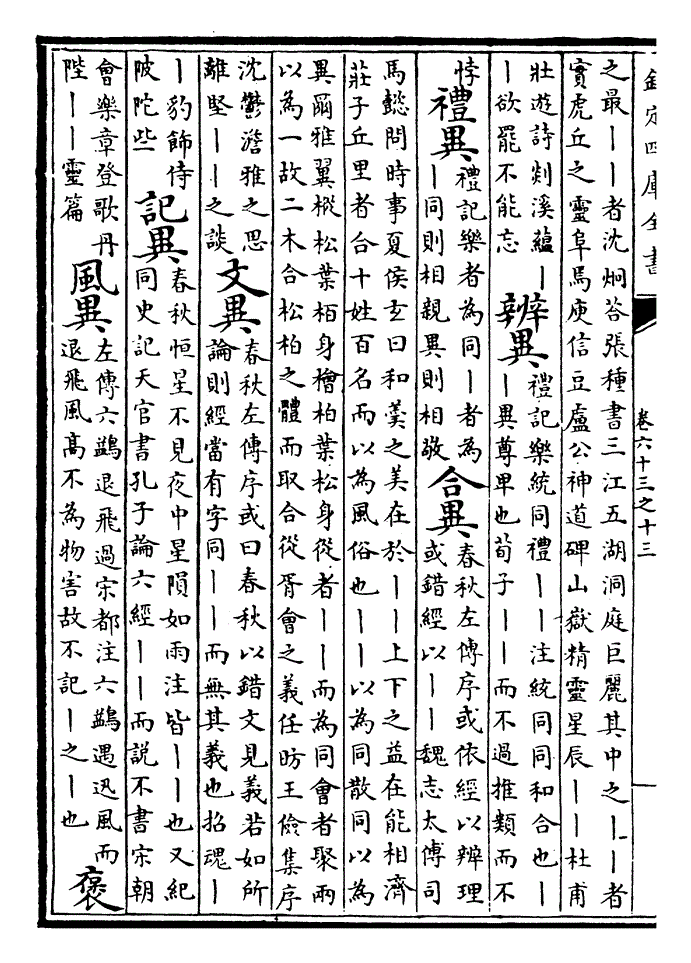 欽定四庫全書
卷六十三之十三
之最｜｜者沈炯荅張種書三江五湖洞庭巨麗其中之｜｜者
實虎丘之靈阜焉庾信豆盧公神道碑山嶽精靈星辰｜｜杜甫
壯遊詩剡溪藴｜
｜欲罷不能忘
辨異
禮記樂統同禮｜｜注統同同和合也｜
｜異尊卑也荀子｜｜而不過推類而不
悖
禮異
禮記樂者為同｜者為
｜同則相親異則相敬
合異
春秋左傳序或依經以辨理
或錯經以｜｜魏志太傅司
馬懿問時事夏侯玄曰和羹之美在於｜｜上下之益在能相濟
莊子丘里者合十姓百名而以為風俗也｜｜以為同散同以為
異爾雅翼樅松葉栢身檜柏葉松身從者｜｜而為同會者聚兩
以為一故二木合松柏之體而取合從胥會之義任昉王儉集序
沈鬱澹雅之思
離堅｜｜之談
文異
春秋左傳序或曰春秋以錯文見義若如所
論則經當有字同｜｜而無其義也招魂｜
｜豹飾侍
陂陀些
記異
春秋恒星不見夜中星隕如雨注皆｜｜也又紀
同史記天官書孔子論六經｜｜而説不書宋朝
會樂章登歌丹
陛｜｜靈篇
風異
左傳六鷁退飛過宋都注六鷁遇迅風而
退飛風髙不為物害故不記｜之｜也
褒